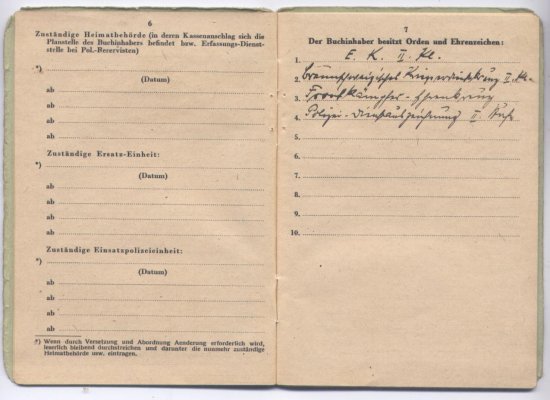 6
Zuständige Heimatbehörde (in deren Kassenanschlag sich die
Planstelle des Buchinhabers befindet bzw. Erfassungs-Dienst-
stelle bei Pol.-Reservisten)
*)
(Datum)
ab
ab
ab
ab
Zuständige Ersatz-Einheit:
*)
(Datum)
ab
ab
ab
Zuständige Einsatzpolizeieinheit:
*)
(Datum)
ab
ab
ab
ab
*) Wenn durch Versetzung und Abordnung Aenderung erforderlich wird,
leserlich bleibend durchstreichen und darunter die nunmehr zuständige
Heimatbehörde usw. eintragen.
7
Der Buchinhaber besitzt Orden und Ehrenzeichen:
1. E. K. II. Kl.
2. Braunschweigisches Kriegsverdienstkreuz II. Kl.
3. Frontkämpfer-Ehrenkreuz
4. Polizei-Dienstauszeichnung II. Stufe
5.
6.
7.
8.
9.
10.